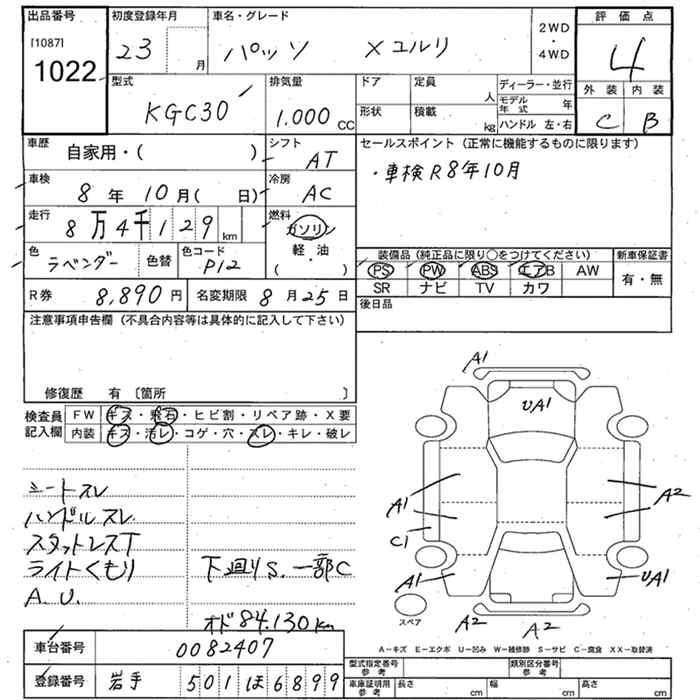 出品番号 初度登録年月 車名・グレード 2WD ・ 4WD 評価点
[1087]
1022
23 月 パッソ X ユルリ 4
型式 排気量 ドア 定員 人 ディーラー・並行 外装 内装
KGC30 1.000 CC 形状 積載 kg モデル年式 年
ハンドル 左・右 C B
車歴 自家用・( ) シフト AT セールスポイント (正常に機能するものに限ります)
・車検R8年10月
車検 8年10月( 日) 冷房 AC
走行 8万4千129km 燃料 ガソリン
軽・油
( )
色 ラベンダー 色替 色コード P12
装備品 (純正品に限り○をつけてください) 新車保証書
PS PW ABS エアB AW 有・無
SR ナビ TV カワ
R券 8,890円 名変期限 8月25日 後日品
注意事項申告欄 (不具合内容等は具体的に記入して下さい)
修復歴 有 〔箇所 〕
検査員記入欄 FW キズ・飛石・ヒビ割・リペア跡・X要
内装 キズ・汚レ・コゲ・穴・スレ・キレ・破レ
シートスレ
ハンドルスレ
スタットレスT
ライトくもり
A.U.
下廻りS.一部C
オド84.130km
A1
UA1
A1
A2
C1
A1
UA1
スペア
A2
A2
A-キズ E-エクボ U-凹み W-補修跡 S-サビ C-腐食 XX-取替済
車台番号 0082407
登録番号 岩手 501 ほ 6899
型式指定番号 参考 類別区分番号 参考
車庫証明用 参考 長さ cm 幅 cm 高さ cm